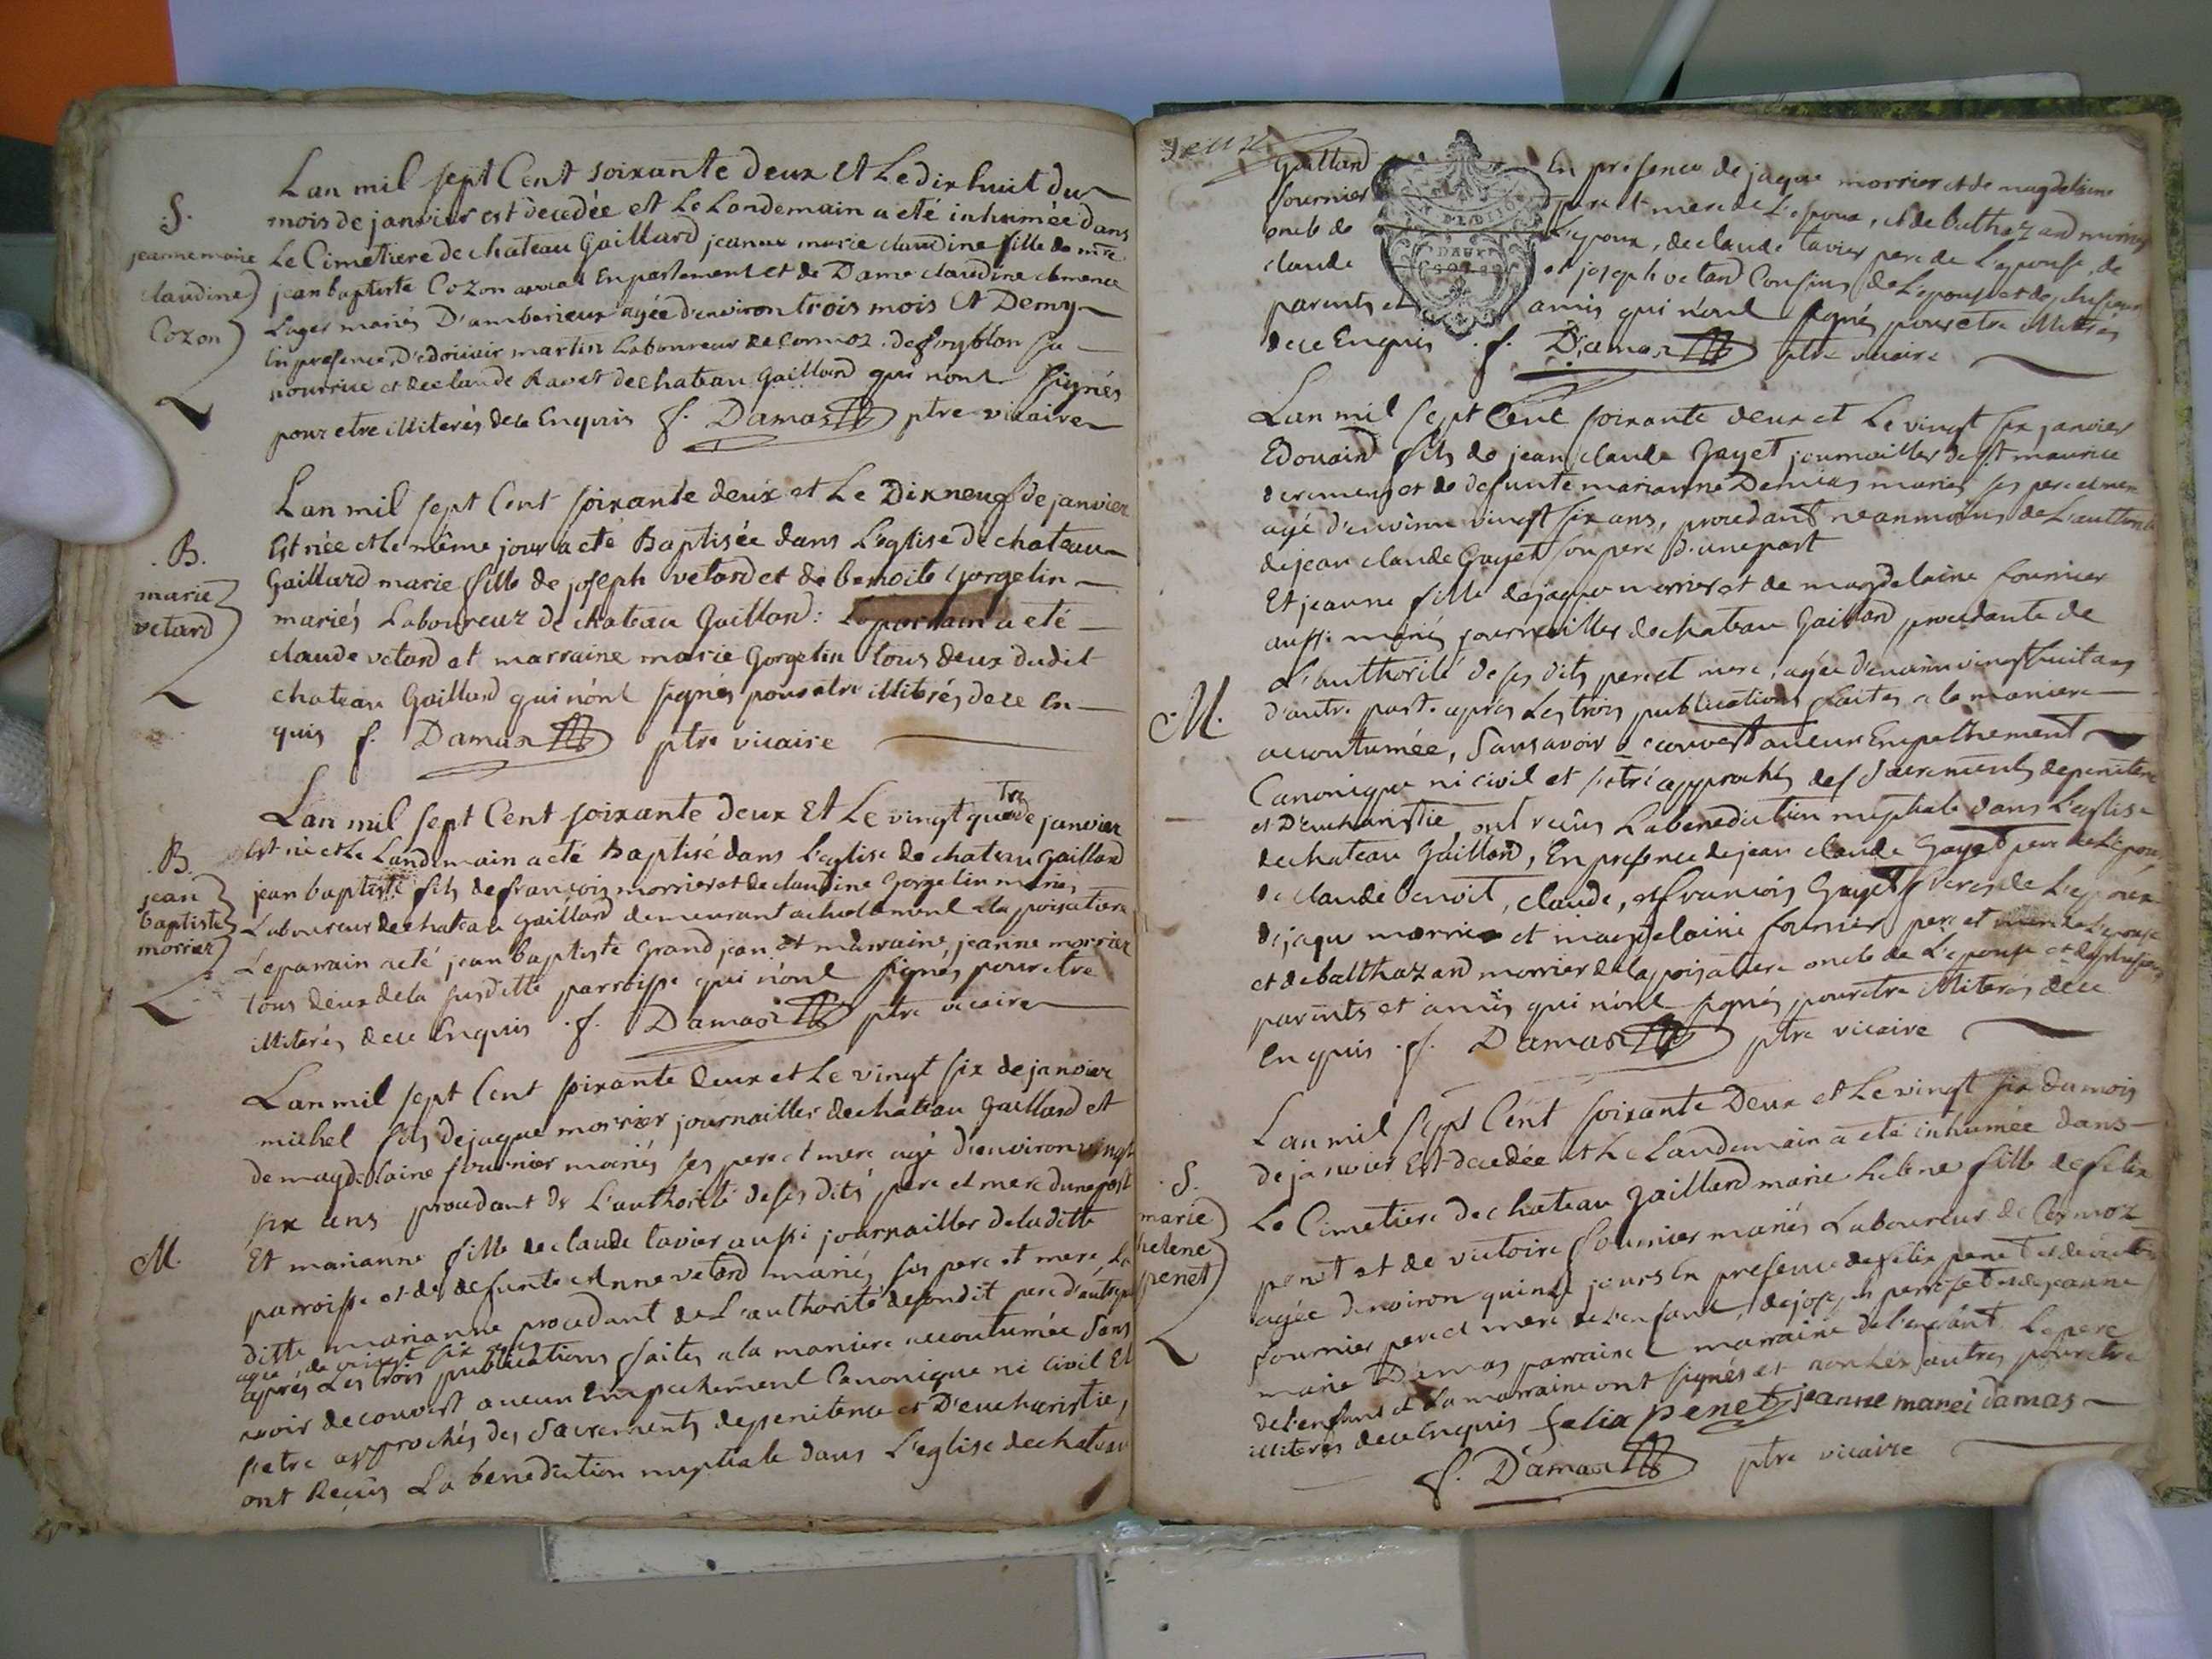 S.
jeanne marie
claudine
Cozon
Lan mil sept Cent soixante deux et Le dix huit du
mois de janvier est decedée et Le Londemain a eté inhumée dans
Le Cimetiere de chateau Gaillard jeanne marie claudine fille de mre
jean baptiste Cozon avocat En parlement et de Dame claudine clemence
Luger mariés D'amberieux agée d'environ trois mois et Demy
En presence D'edouair martin Laboureur de Cormoz
nourrice et de claude Ravet de chateau Gaillard qui n'ont signés
pour etre illiterés de ce Enquis f. Damas ptre vicaire
B.
marie
vetard
Lan mil sept Cent soixante deux et Le Dix neuf de janvier
Est née et le même jour a eté Baptisée dans L'eglise de chateau
Gaillard marie fille de joseph vetard et de benoite Gorgelin
mariés Laboureur de chateau Gaillard: Le parrain a eté
claude vetard et marraine marie Gorgelin tous deux dudit
chateau Gaillard qui n'ont signés pour etre illiterés de ce En
quis f. Damas ptre vicaire
B.
jean
baptiste
morrier
Lan mil sept Cent soixante deux Et Le vingt quatre de janvier
Est né et Le Landemain a eté Baptisé dans L'eglise de chateau Gaillard
jean baptiste fils de françois morrier et de claudine Gorgelin mariés
Laboureur de chateau Gaillard demeurant actuellement a la poisatiere
Le parrain a eté jean baptiste Grand jean et marraine jeanne morrier
tous deux de la susditte parroisse qui n'ont signés pour etre
illiterés de ce Enquis f. Damas ptre vicaire
M.
Lan mil sept Cent soixante deux et Le vingt six de janvier
michel fils de jaque morrier journailler de chateau Gaillard et
de magdelaine fournier mariés ses pere et mere agé d'environ vingt
six ans procedant de L'authorité de ses dits pere et mere d'une part
Et marianne fille de claude tavier aussi journailler de la ditte
parroisse et de defunte Anne vetard mariés ses pere et mere, La
ditte marianne procedant de L'authorité de son dit pere d'autre part
agée de vingt six ans
après Les trois publications faites a la maniere accoutumée Sans
avoir decouvert aucun Empechement Canonique ni Civil Et
s'etre approchés des Sacrements de penitence et D'eucharistie,
ont Reçus La benediction nuptiale dans L'eglise de chateau
deux
Gaillard En presence de jaque morrier et de magdelaine
fournier pere et mere de L'epoux, et de balthazard morrier
oncle de L'epoux, de claude tavier pere de L'epouse, de
claude et joseph vetard Cousins de L'epouse et de plusieurs
parents et amis qui n'ont signés pour etre illiterés
de ce Enquis f. Damas ptre vicaire
M.
Lan mil sept Cent soixante deux et Le vingt six janvier
Edouard fils de jean claude Gayet journailler de St maurice
de remens et de defunte marianne Demias mariés ses pere et mere
agé d'environ vingt six ans, procedant neanmoins de L'authorité
de jean claude Gayet son pere d'une part
Et jeanne fille de jaque morrier et de magdelaine fournier
aussi mariés journailler de chateau Gaillard procedante de
L'authorité de ses dits pere et mere, agée d'environ vingt huit ans
d'autre part. après Les trois publications faites a la maniere
accoutumée, Sans avoir decouvert aucun Empechement
Canonique ni civil et s'etre approchés des Sacrements de penitence
et D'eucharistie, ont reçus La benediction nuptiale dans L'eglise
de chateau Gaillard, En presence de jean claude Gayet pere de L'epoux
de claude benoit, claude, et françois Gayet freres de L'epoux
de jaque morrier et magdelaine fournier pere et mere de L'epouse
et de balthazard morrier de la poisatiere oncle de L'epouse et de plusieurs
parents et amis qui n'ont signés pour etre illiterés de ce
Enquis f. Damas ptre vicaire
S.
marie
helene
penet
Lan mil sept Cent soixante Deux et Le vingt six du mois
de janvier Est decedée et Le Landemain a eté inhumée dans
Le Cimetiere de chateau Gaillard marie helene fille de felix
penet et de victoire fournier mariés Laboureur de Cormoz
agée d'environ quinze jours En presence de felix penet et de victoire
fournier pere et mere de L'enfant, de joseph et de jeanne
marie Damas parrain et marraine de L'enfant Le pere
de L'enfant et La marraine ont signés et non Les autres pour etre
illiterés de ce Enquis felix penet jeanne marei damas
f. Damas ptre vicaire